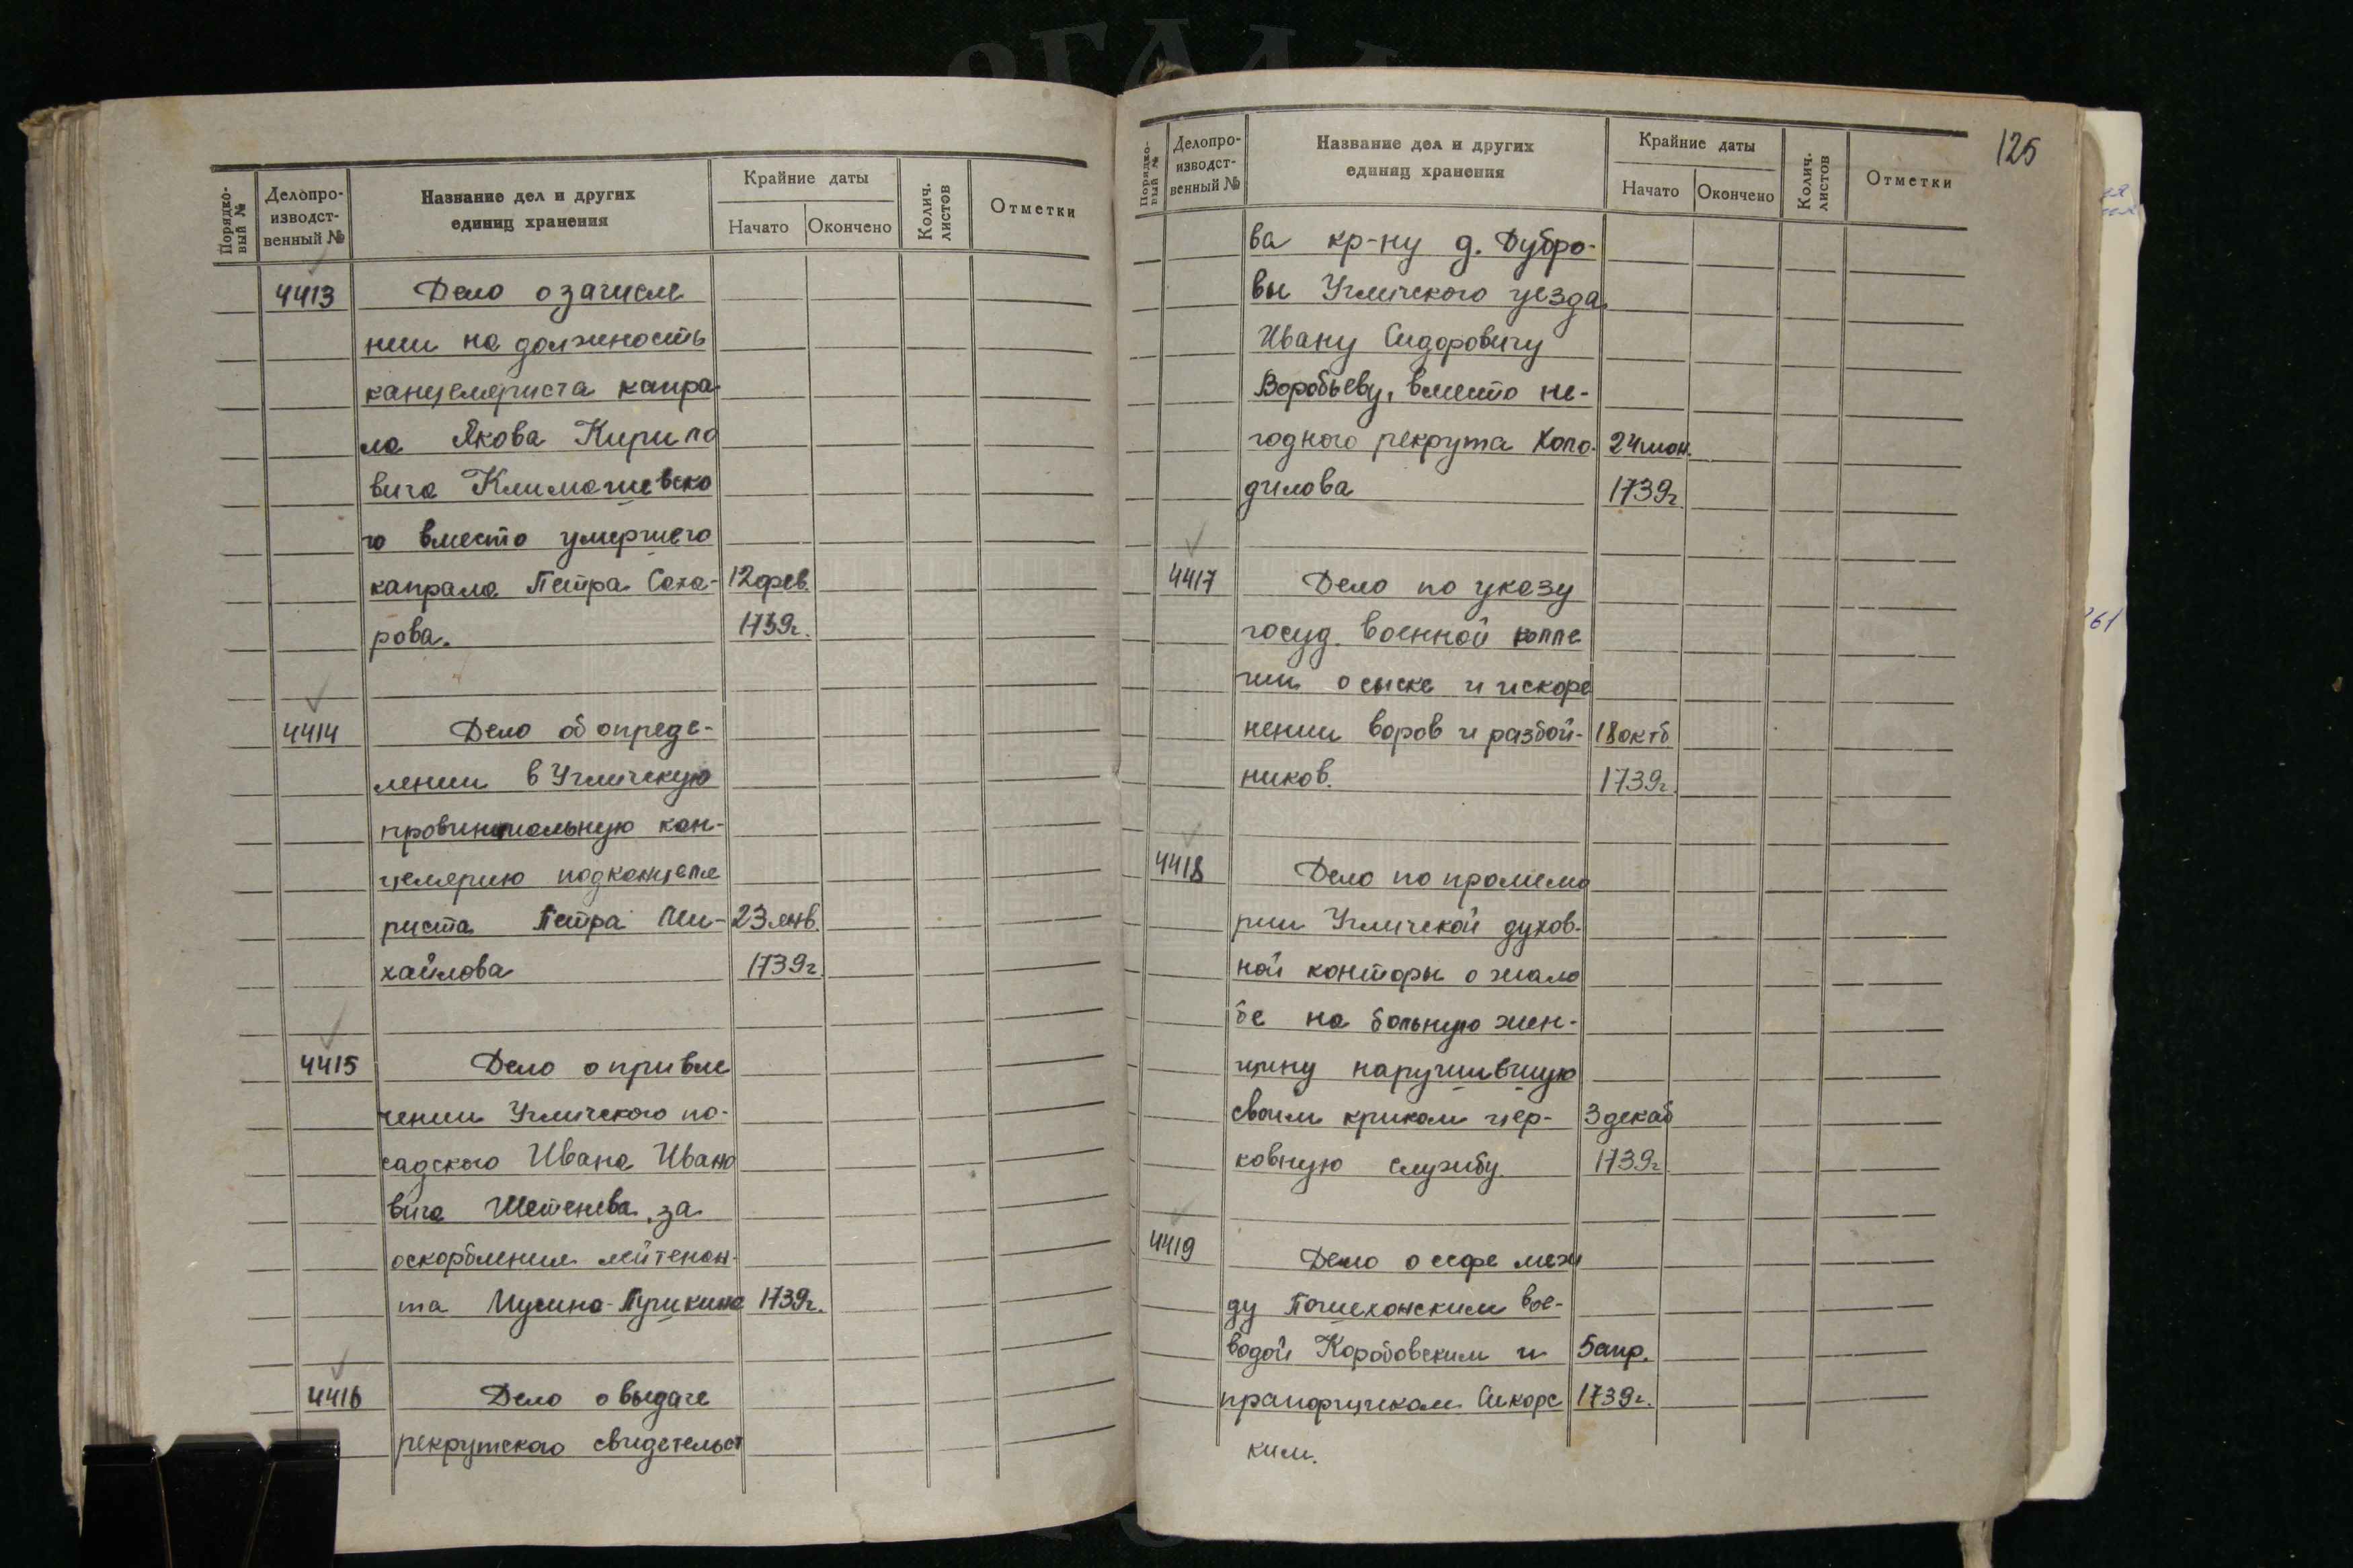 Порядко-
вый №
Делопро-
изводст-
венный №
Название дел и других
единиц хранения
Крайние даты
Начато
Окончено
Колич.
листов
Отметки
4413 Дело о зачисле
нии на должность
канцеляриста капра
ла Якова Кирило
вича Климашевско
го вместо умершего
капрала Петра Саха- 12 фев.
рова. 1739г.
4414 Дело об опреде-
лении в Угличскую
провинциальную кан-
целярию подканцеля
риста Петра Ми- 23 янв.
хайлова 1739г.
4415 Дело о привле
чении Угличского по-
садского Ивана Ивано
вича Шетенева, за
оскорбления лейтенан-
та Мусина-Пушкина 1739г.
4416 Дело о выдаче
рекрутского свидетельст
125
Порядко-
вый №
Делопро-
изводст-
венный №
Название дел и других
единиц хранения
Крайние даты
Начато
Окончено
Колич.
листов
Отметки
ва кр-ну д. Дубро-
вы Угличского уезда
Ивану Сидоровичу
Воробьеву, вместо не-
годного рекрута Холо- 24
дилова 1739г.
4417 Дело по указу
госуд. военной колле
гии о сыске и искоре
нении воров и разбой- 18 октб
ников. 1739г.
4418 Дело по промемо
рии Угличской духов-
ной конторы о жало
бе на больную жен-
щину нарушившую
своим криком цер- 3 декаб
ковную службу. 1739г.
4419 Дело о ссоре меж
ду Пошехонским вое-
водой Коробовским и 5 апр.
прапорщиком Сикорс 1739г.
ким.
261